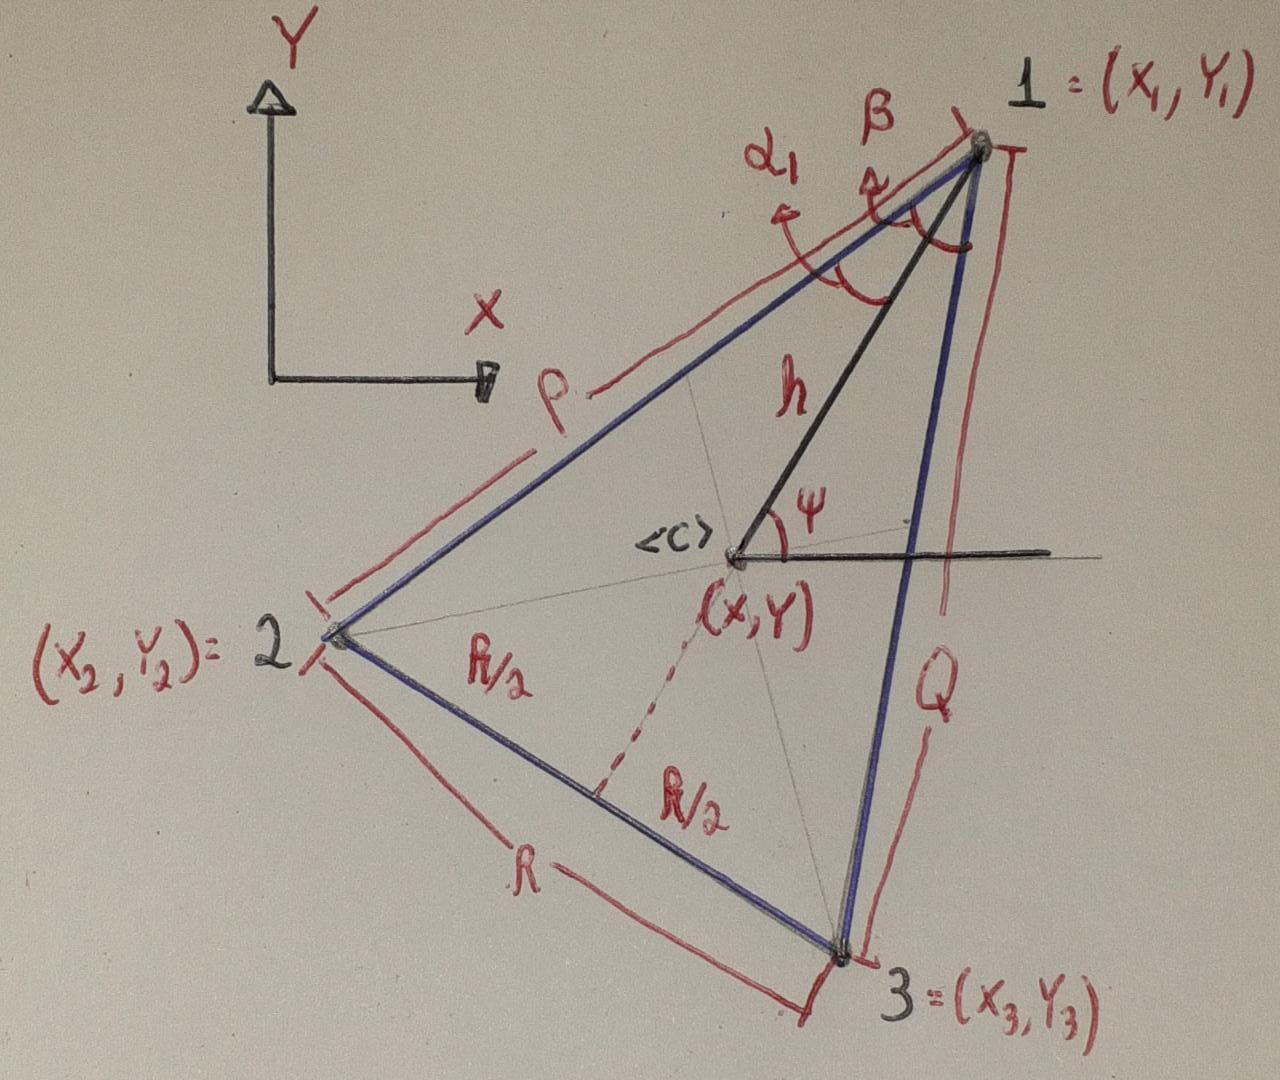 Y
1 = (X₁, Y₁)
β
α₁
X
P
h
ψ
<C>
(X,Y)
(X₂, Y₂) = 2
R/2
Q
R/2
R
3 = (X₃, Y₃)